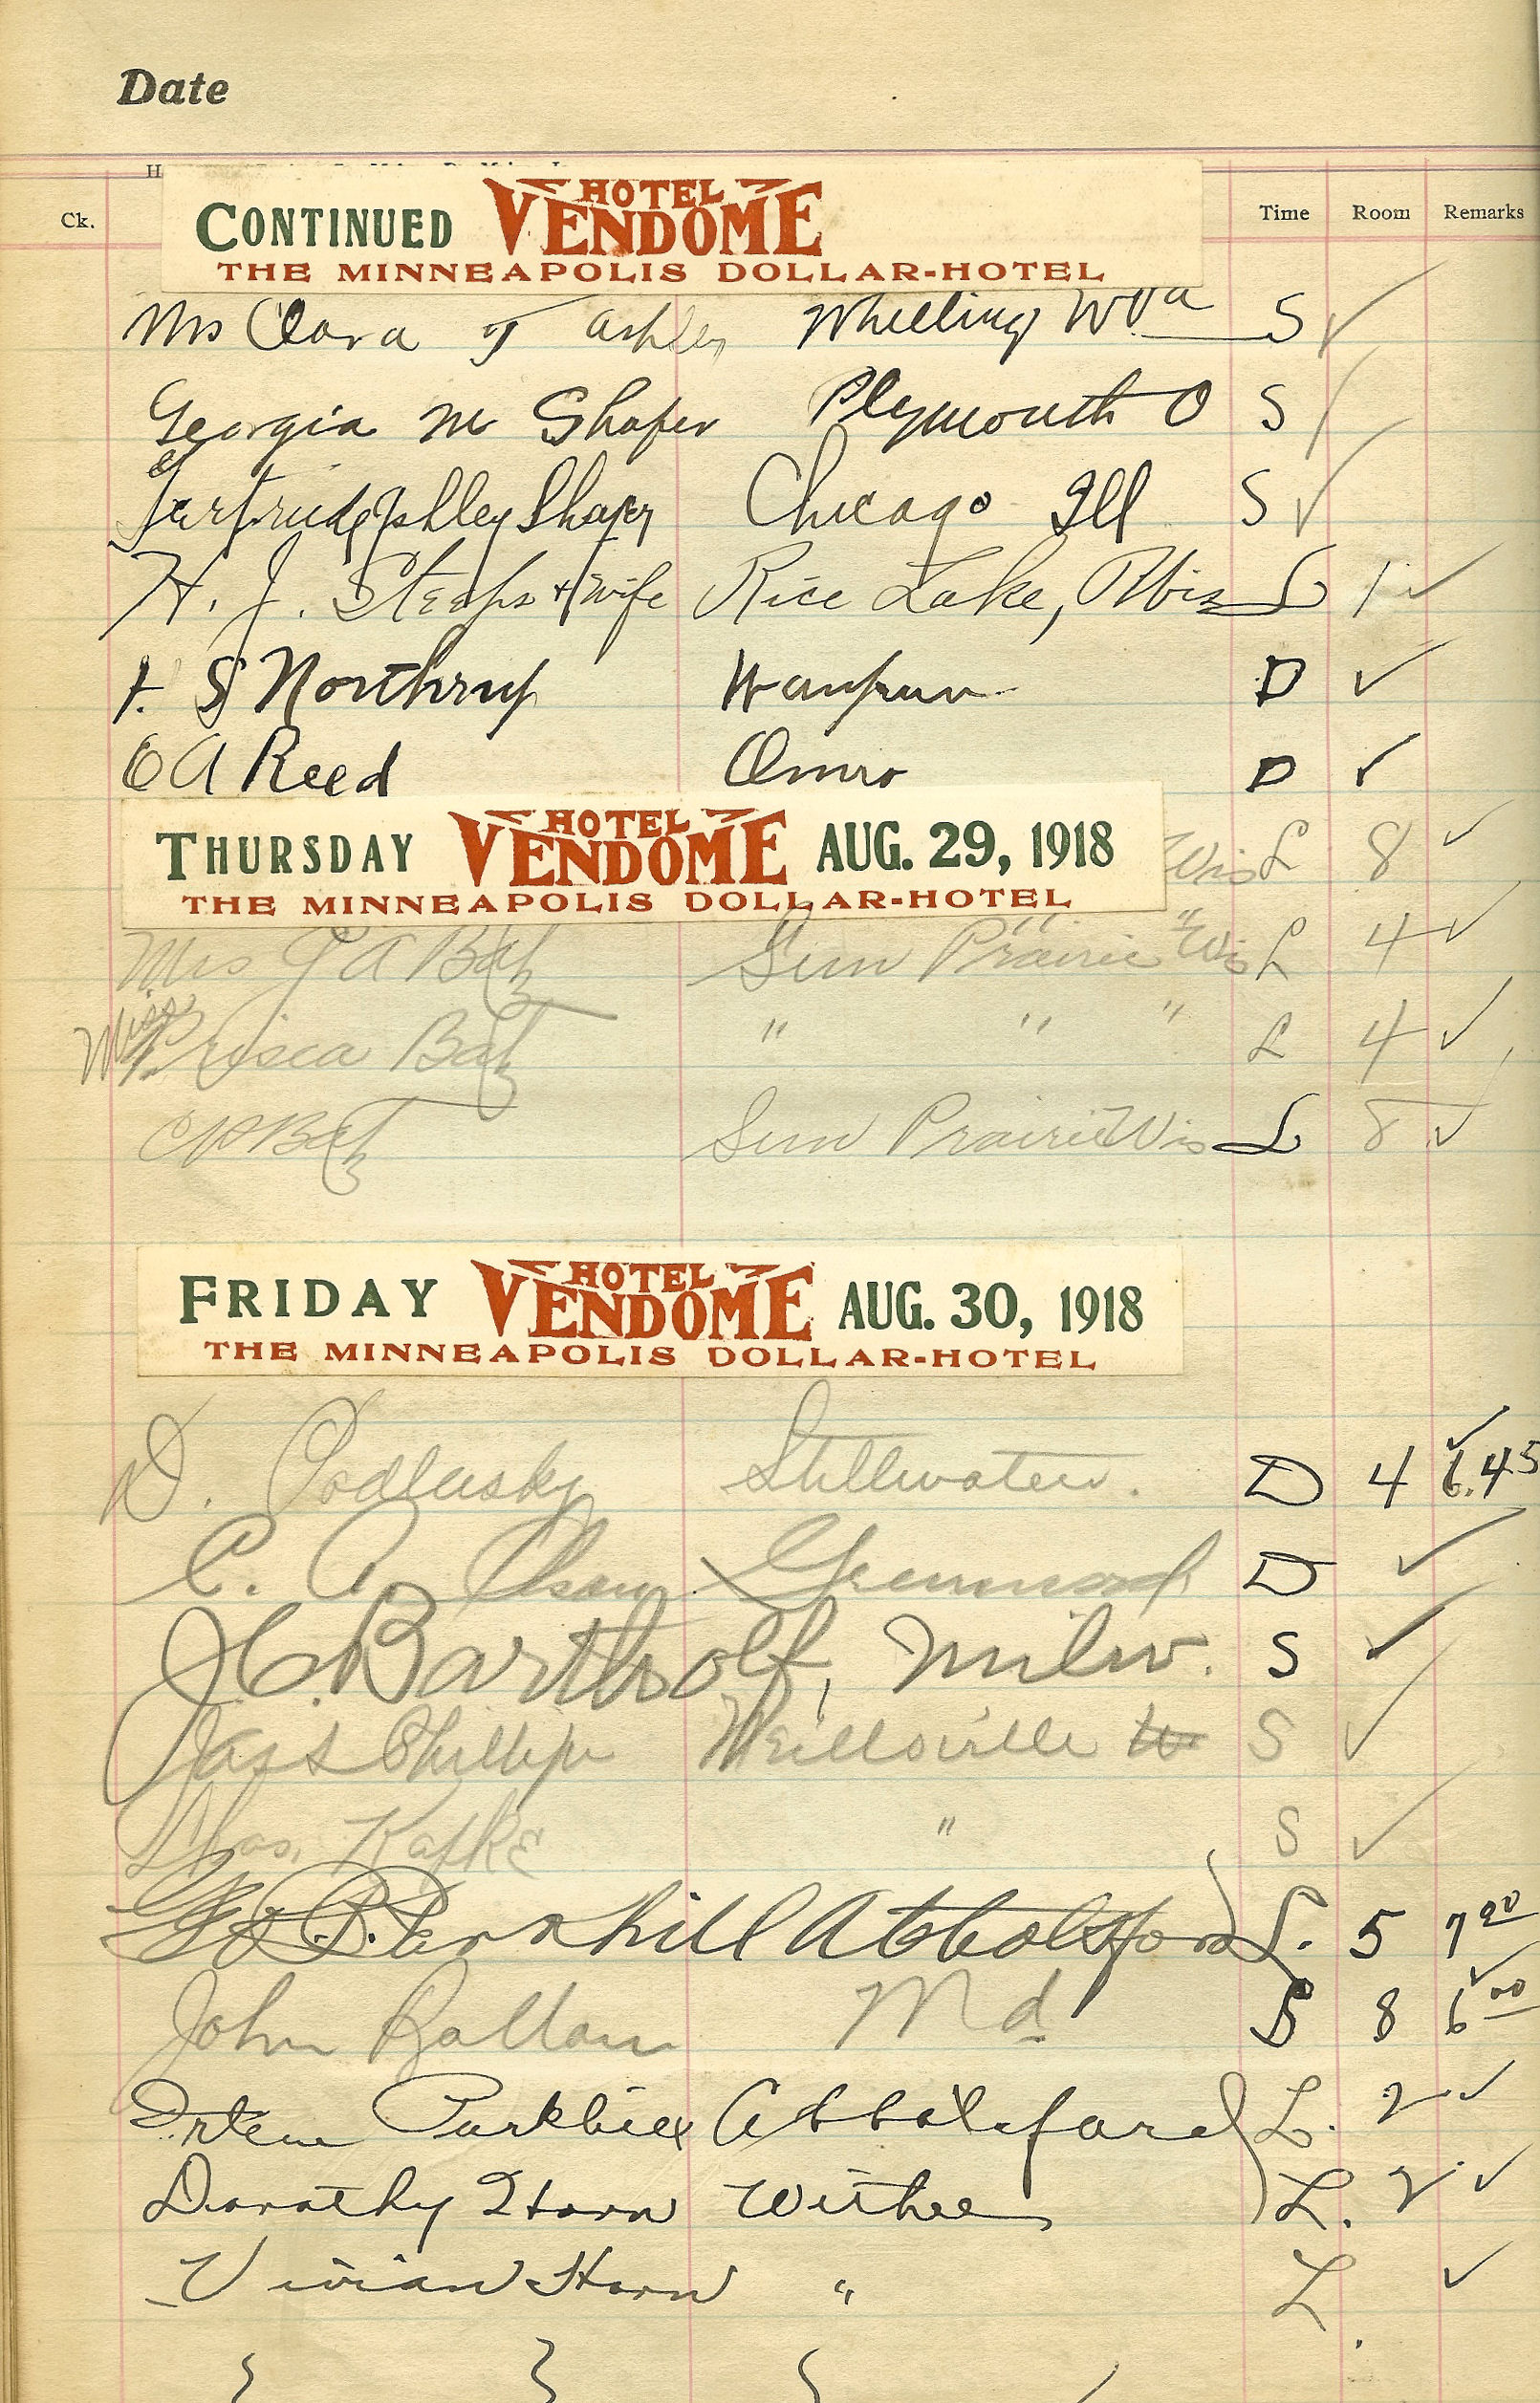 Date
Ck. Time Room Remarks
CONTINUED HOTEL VENDOME
THE MINNEAPOLIS DOLLAR-HOTEL
Mrs Clara T Ashley Wheeling W Va S
Georgia M Shafer Plymouth O S
Gertrude Ashley Shafer Chicago Ill S
H. J. Steeps + wife Rice Lake, Wis L 1
F. S Northrup Waupun D
O A Reed Omro D
THURSDAY HOTEL VENDOME AUG. 29, 1918
THE MINNEAPOLIS DOLLAR-HOTEL
Wis L 8
Mrs J A Batz Sun Prairie Wis L 4
Miss Prisca Batz " " " L 4
C P Batz Sun Prairie Wis L 8
FRIDAY HOTEL VENDOME AUG. 30, 1918
THE MINNEAPOLIS DOLLAR-HOTEL
D. Podlasky Stillwater. D 4 6.45
C. A. Olson Greenwood D
J.C. Bartholf, Milw. S
Jass Phillips Neillsville S
Chas. Kafke " S
Geo B. Parkhill Abbotsford L. 5 7 00
John Rattan Md S 8 6 00
Parkhill Abbotsford L. 2
Dorothy Horn Withee L. 2
Vivian Horn " L